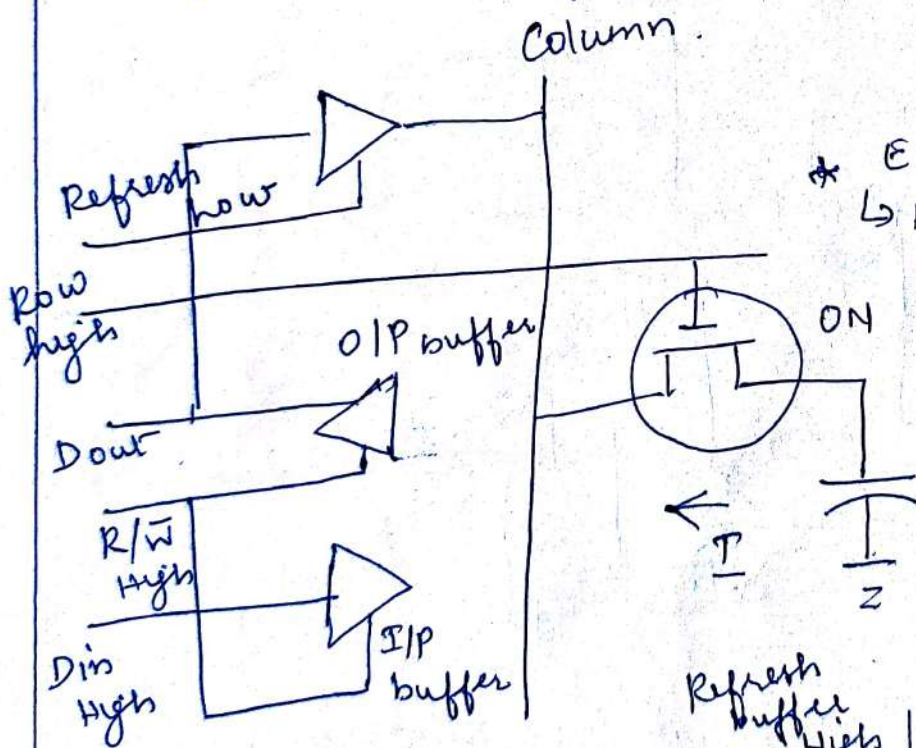 Column.
Refresh
Low
* E
↳
Row
high
ON
O/P buffer
Dout
R/W̅
High
I
Din
High
I/P
buffer
Refresh
buffer
High